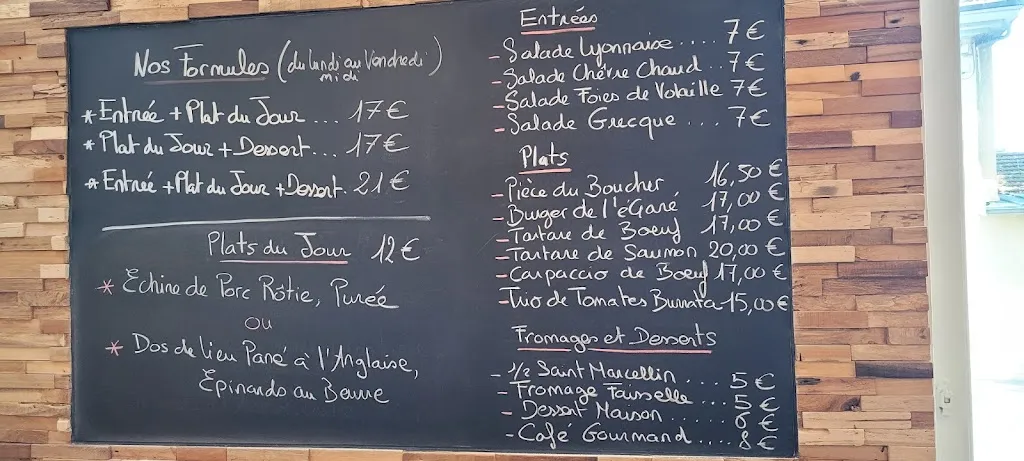 Nos Formules (du lundi au Vendredi)
midi
* Entrée + Plat du Jour ... 17€
* Plat du Jour + Dessert... 17€
* Entrée + Plat du Jour + Dessert. 21€
Plats du Jour 12€
* Echine de Porc Rôtie, Purée
ou
* Dos de lieu Pané à l'Anglaise,
Épinards au Beurre
Entrées
- Salade Lyonnaise .... 7€
- Salade Chèvre Chaud .. 7€
- Salade Foies de Volaille 7€
- Salade Grecque ... 7€
Plats
- Pièce du Boucher 16,50€
- Burger de l'éGaré 17,00€
- Tartare de Boeuf 17,00€
- Tartare de Saumon 20,00€
- Carpaccio de Boeuf 17,00€
- Trio de Tomates Burrata 15,00€
Fromages et Desserts
- 1/2 Saint Marcellin ... 5€
- Fromage Faisselle ... 5€
- Dessert Maison .... 6€
- Café Gourmand .... 8€